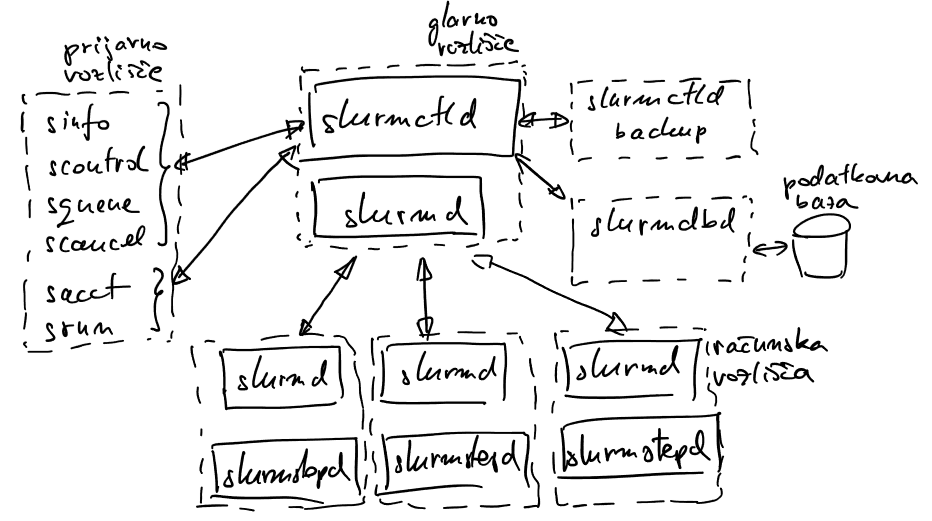 prijavno
vozlišče
sinfo
scontrol
squeue
scancel
sacct
srun
glavno
vozlišče
slurmctld
slurmd
slurmctld
backup
slurmdbd
podatkovna
baza
slurmd
slurmstepd
slurmd
slurmstepd
slurmd
slurmstepd
računska
vozlišča